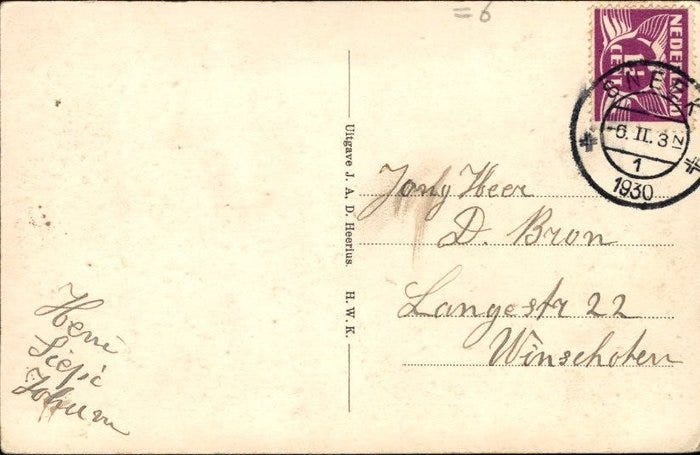 =6
NEDERLAND
1½
CENT
SNEEK
-6.II.3 N
1
1930
Uitgave J. A. D. Heerius. H. W. K.
Jong Heer
D. Bron
Langestr 22
Winschoten
Henri
Siepi